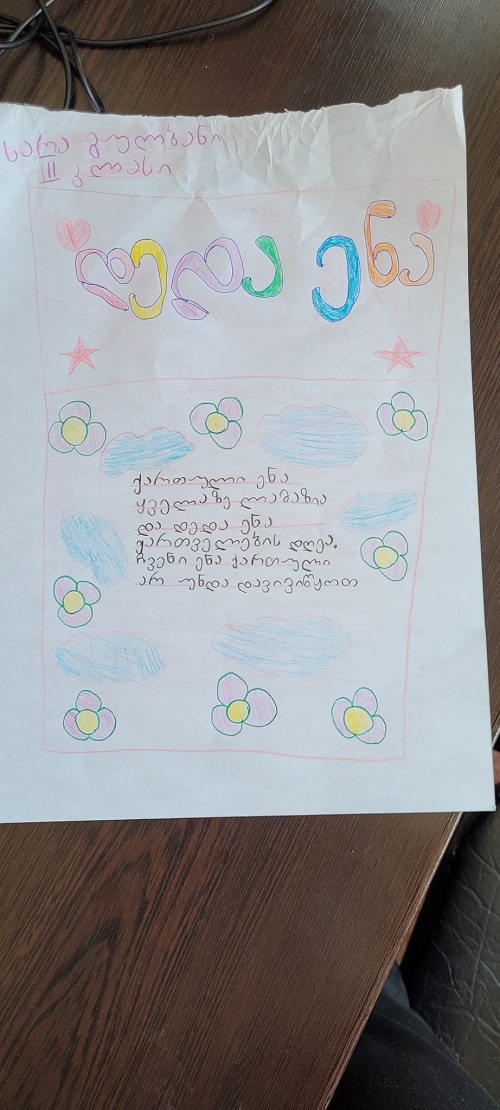 სარა გულბანი
III კლასი
დედა ენა
ქართული ენა
ყველაზე ლამაზია
და დედა ენა
ქართველების დღეა.
ჩვენი ენა ქართული
არ უნდა დავივიწყოთ